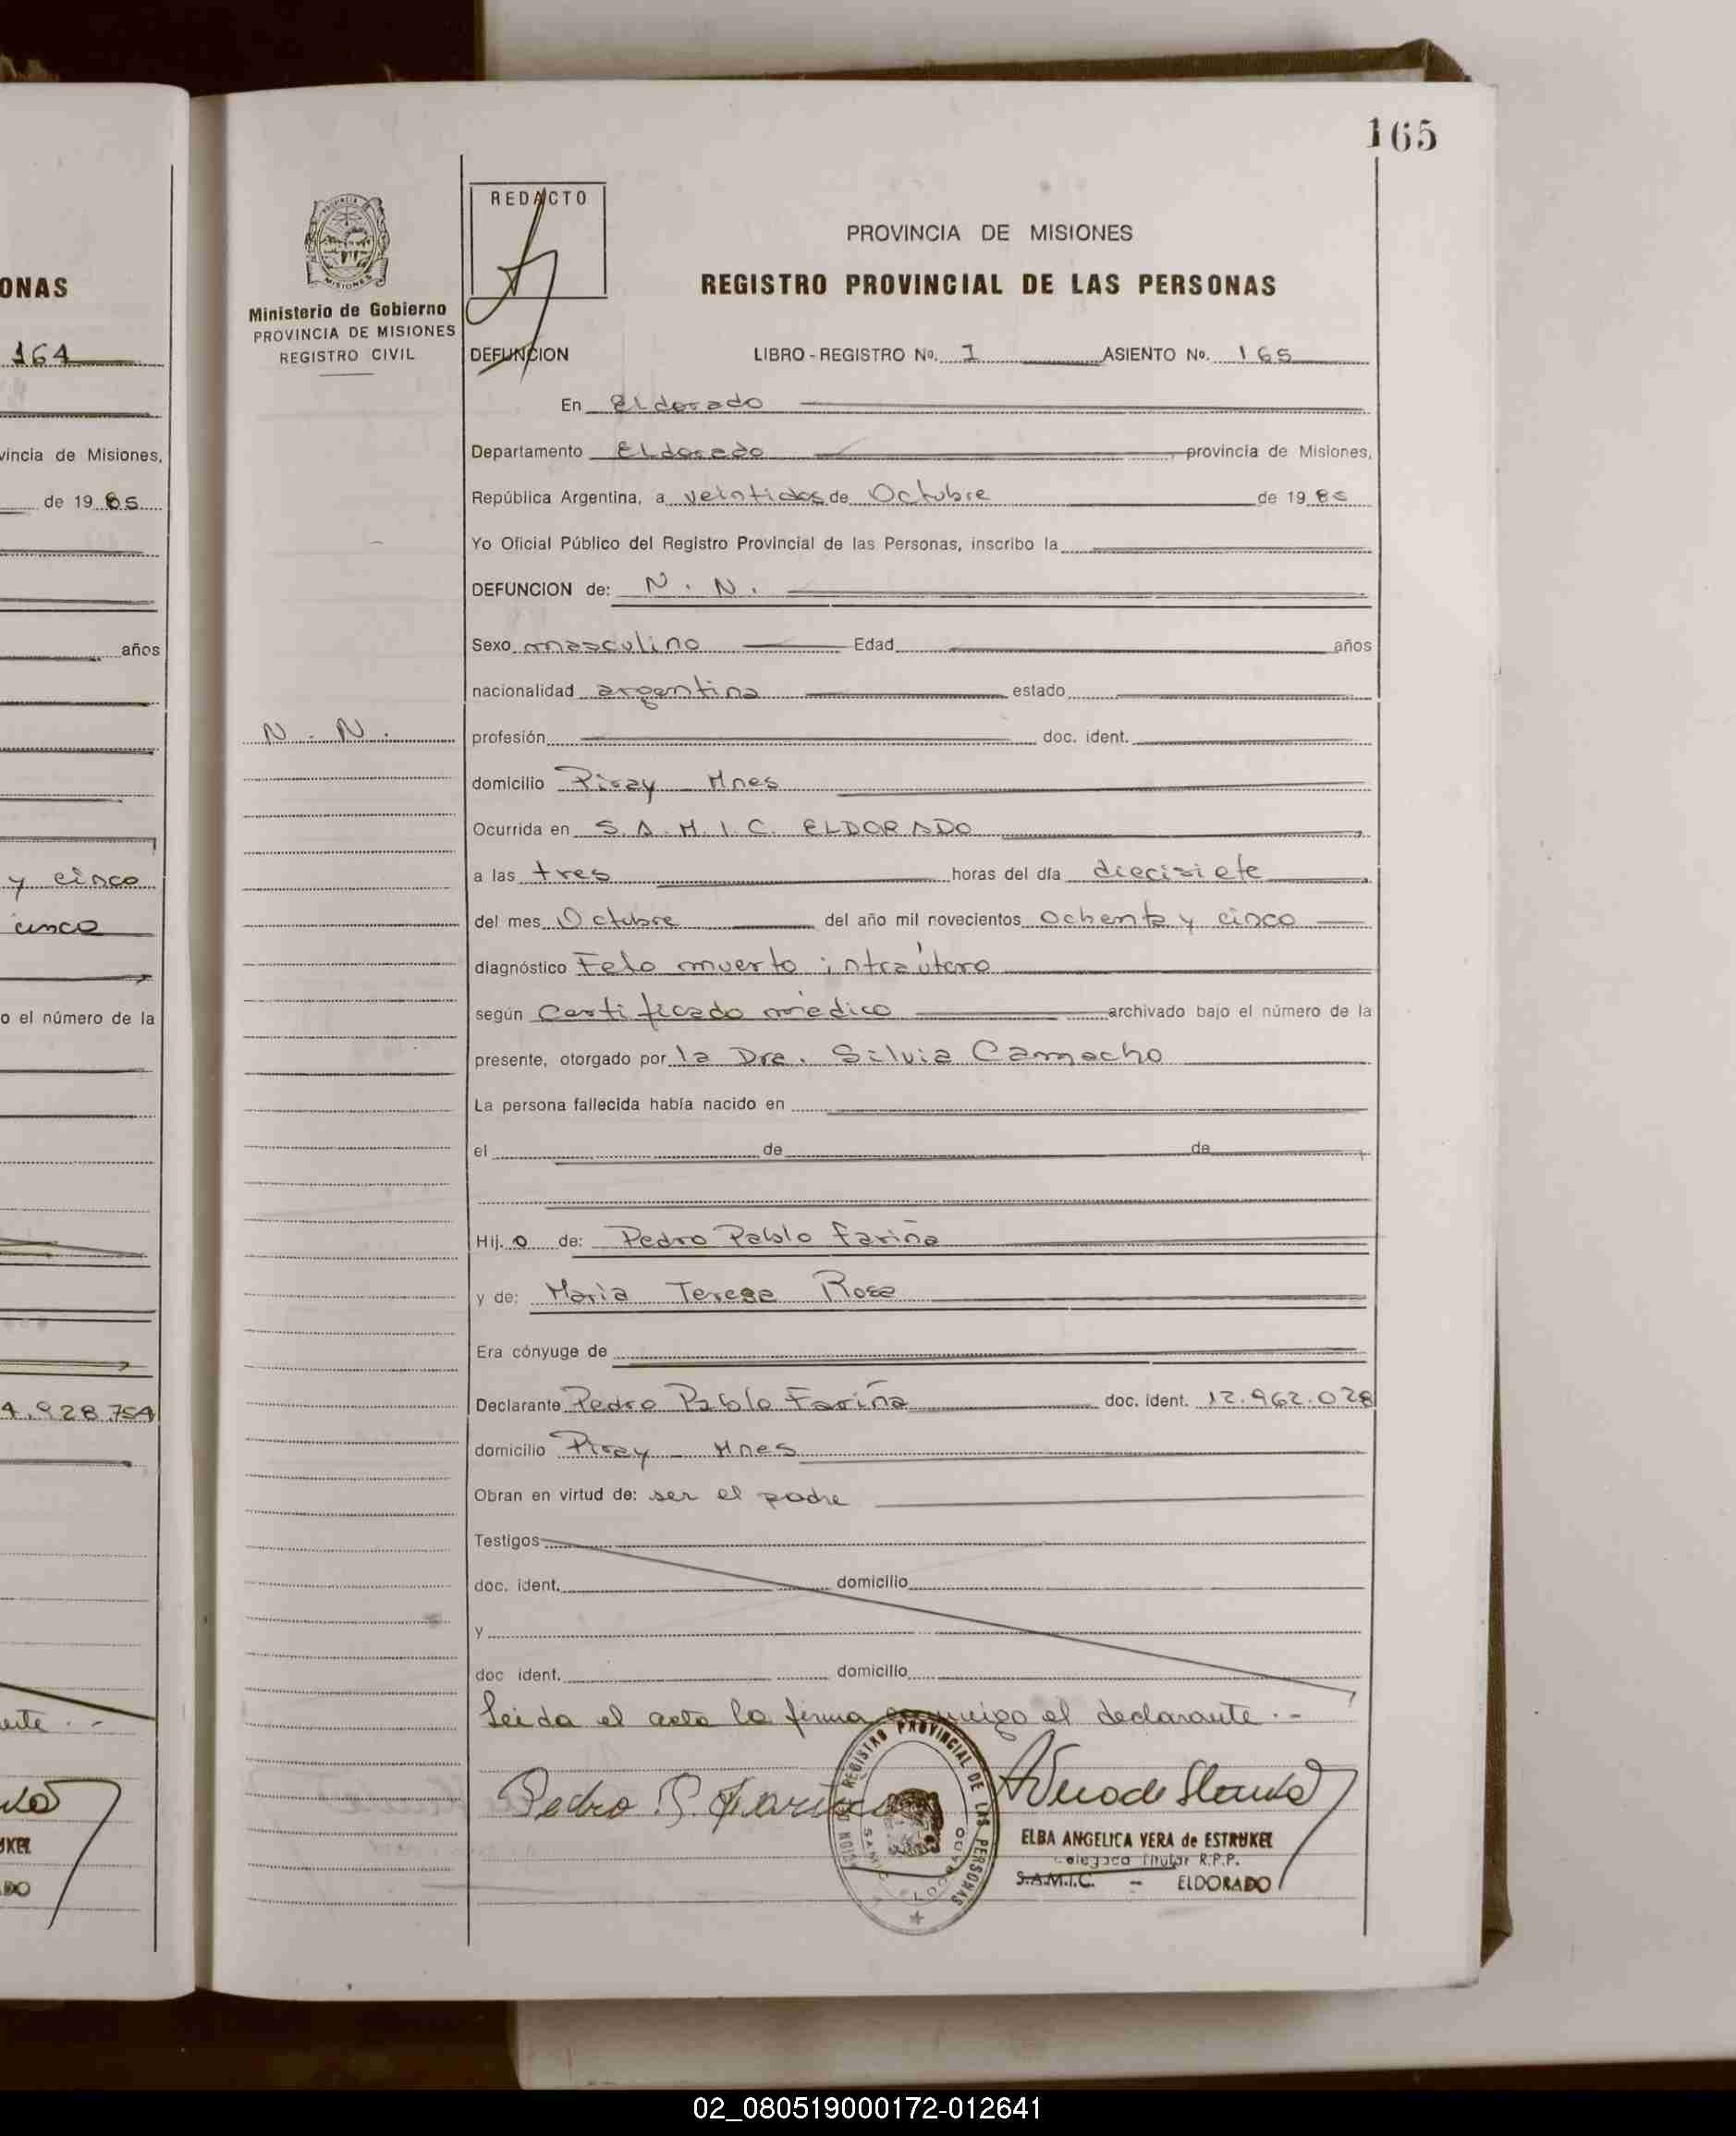 165
ONAS
164
vincia de Misiones,
de 19 85
años
y cinco
cinco
o el número de la
4.928.754
PROVINCIA DE MISIONES
Ministerio de Gobierno
PROVINCIA DE MISIONES
REGISTRO CIVIL
N. N.
REDACTO
PROVINCIA DE MISIONES
REGISTRO PROVINCIAL DE LAS PERSONAS
DEFUNCION LIBRO - REGISTRO No. 1 ASIENTO No. 165
En Eldorado
Departamento Eldorado, provincia de Misiones,
República Argentina, a veintidos de Octubre de 19 85
Yo Oficial Público del Registro Provincial de las Personas, inscribo la
DEFUNCION de: N. N.
Sexo masculino Edad años
nacionalidad argentina estado
profesión doc. ident.
domicilio Piray Mnes
Ocurrida en S.A.M.I.C. ELDORADO,
a las tres horas del día diecisiete,
del mes Octubre del año mil novecientos ochenta y cinco
diagnóstico Feto muerto intraútero
según Certificado médico archivado bajo el número de la
presente, otorgado por la Dra. Silvia Camacho
La persona fallecida había nacido en
el de de
Hij o de: Pedro Pablo Fariña
y de: Maria Teresa Rosa
Era cónyuge de
Declarante Pedro Pablo Fariña doc. ident. 12.962.028
domicilio Piray Mnes
Obran en virtud de: ser el padre
Testigos
doc. ident. domicilio
y
doc ident. domicilio
Leida el acta la firma conmigo el declarante.-
Pedro P. Fariña
REGISTRO PROVINCIAL DE LAS PERSONAS
ELBA ANGELICA VERA de ESTRUKEL
Delegada Titular R.P.P.
S.A.M.I.C. - ELDORADO
02_080519000172-012641